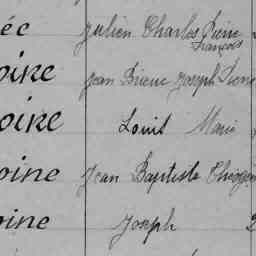 ée Julien Charles Pierre
François
oire Jean Brieuc Joseph
oire Louis Marie
oine Jean Baptiste
oine Joseph 2